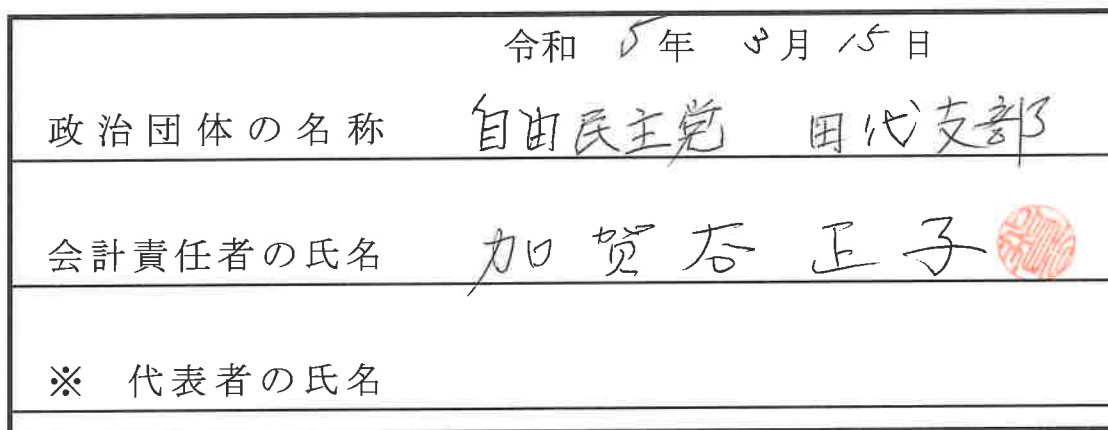 令和 5年 3月 15日
政治団体の名称 自由民主党 田代支部
会計責任者の氏名 加賀谷正子
※ 代表者の氏名